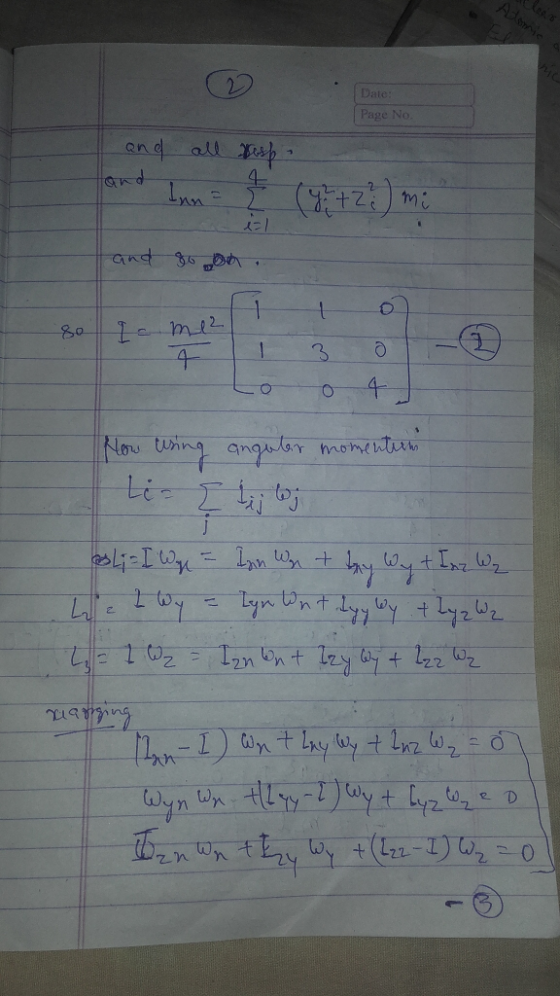 2
Date:
Page No.
and all resp.
and Ixx = 4∑i=1 (yi²+zi²) mi
and so on.
so I = ml²/4 [1 1 0
1 3 0
0 0 4] — 2
Now using angular momentum
Li = ∑j Iij ωj
L1 = Iωx = Ixx ωx + Ixy ωy + Ixz ωz
L2 = I ωy = Iyx ωx + Iyy ωy + Iyz ωz
L3 = I ωz = Izx ωx + Izy ωy + Izz ωz
(Ixx − I) ωx + Ixy ωy + Ixz ωz = 0
ωyx ωx + (Iyy − I) ωy + Iyz ωz = 0
Izx ωx + Izy ωy + (Izz − I) ωz = 0
— 3